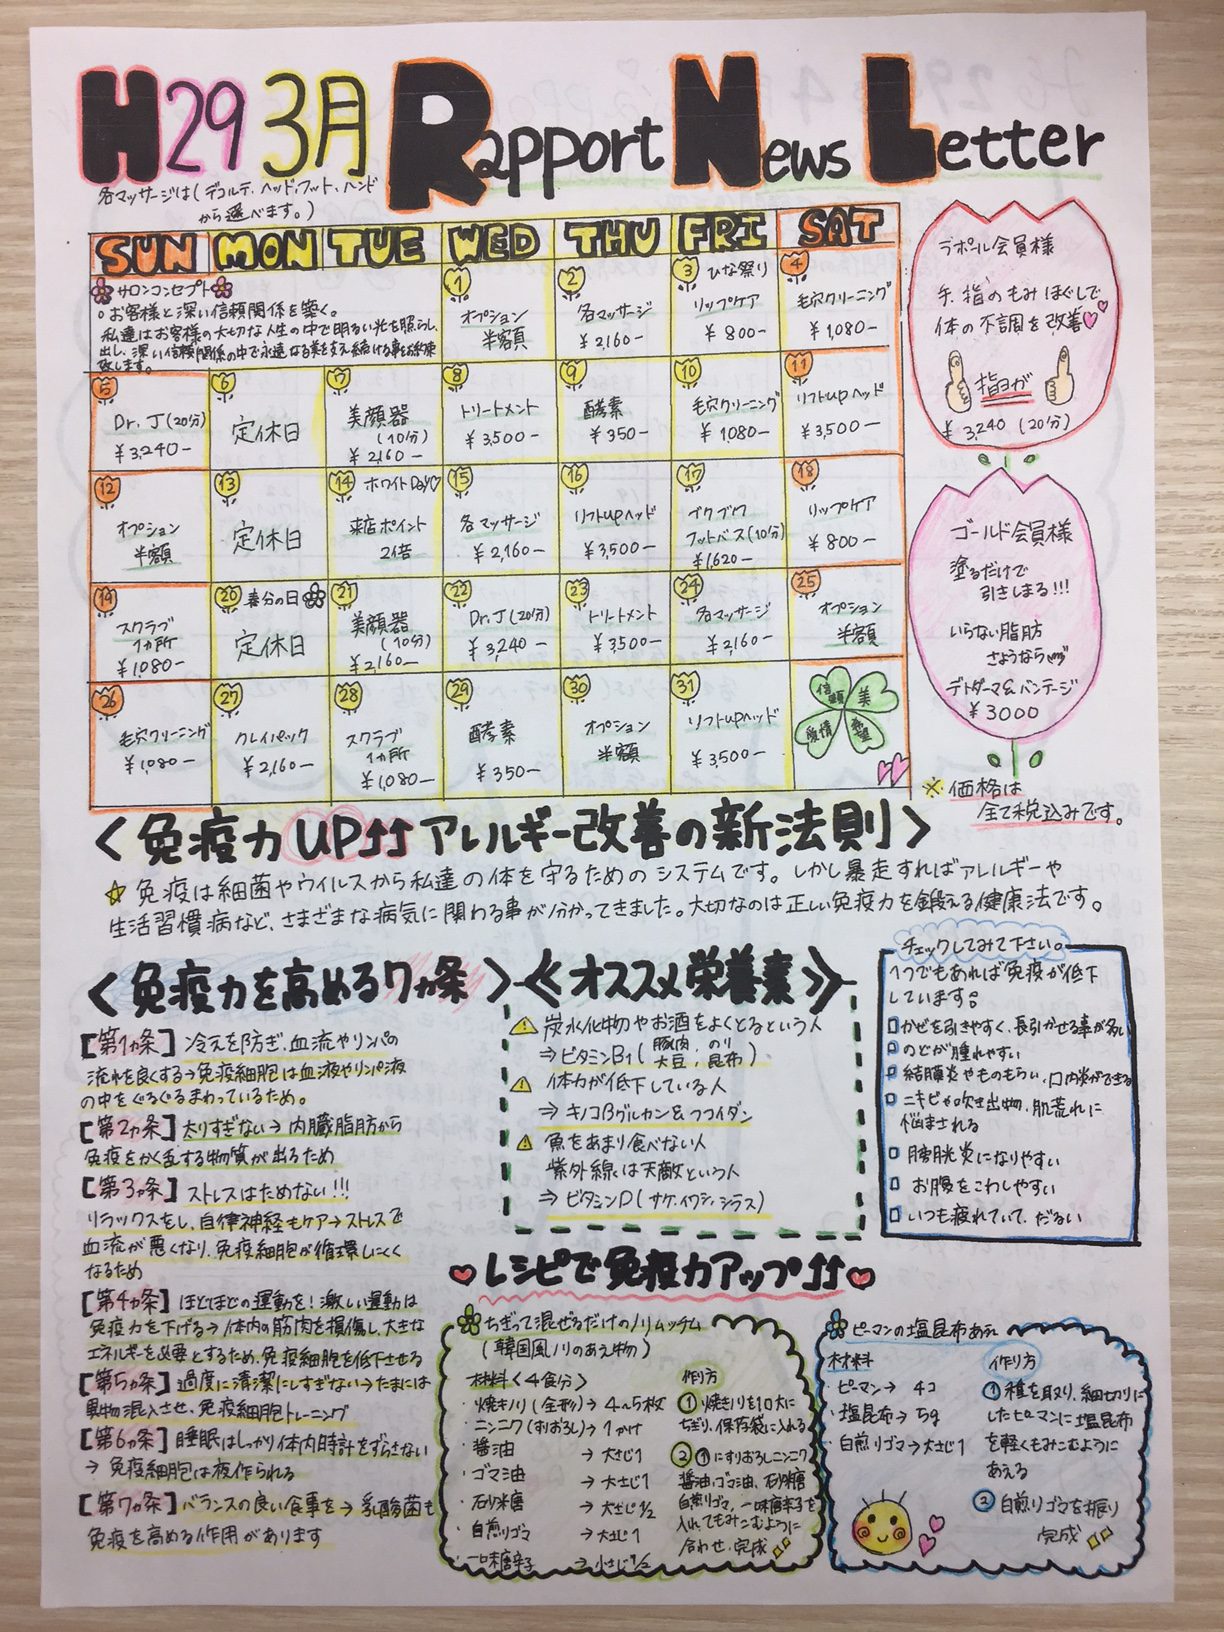 H29 3月 Rapport News Letter
各マッサージは(デコルテ、ヘッド、フット、ハンド
から選べます。)
SUN MON TUE WED THU FRI SAT
サロンコンセプト
。お客様と深い信頼関係を築く。
私達はお客様の大切な人生の中で明るい光を照らし
出し、深い信頼関係の中で永遠なる美を支え続ける事をお約束
致します。
1
オプション
半額
2
各マッサージ
¥2,160-
3 ひな祭り
リップケア
¥800-
4
毛穴クリーニング
¥1,080-
5
Dr.J(20分)
¥3,240-
6
定休日
7
美顔器
(10分)
¥2,160-
8
トリートメント
¥3,500-
9
酵素
¥350-
10
毛穴クリーニング
¥1080-
11
リフトupヘッド
¥3,500-
12
オプション
半額
13
定休日
14 ホワイトDay♡
来店ポイント
2倍
15
各マッサージ
¥2,160-
16
リフトupヘッド
¥3,500-
17
ブクブク
フットバス(10分)
¥1,620-
18
リップケア
¥800-
19
スクラブ
1ヵ所
¥1080-
20 春分の日
定休日
21
美顔器
(10分)
¥2,160-
22
Dr.J(20分)
¥3,240-
23
トリートメント
¥3,500-
24
各マッサージ
¥2,160-
25
オプション
半額
26
毛穴クリーニング
¥1,080-
27
クレイパック
¥2,160-
28
スクラブ
1ヵ所
¥1,080-
29
酵素
¥350-
30
オプション
半額
31
リフトupヘッド
¥3,500-
信頼 美
愛情
ラポール会員様
手、指のもみほぐしで
体の不調を改善♡♡
指ヨガ
¥3,240(20分)
ゴールド会員様
塗るだけで
引きしまる!!!
いらない脂肪
さようなら
デトダーマ&バンテージ
¥3000
※価格は
全て税込みです。
<免疫力UP⇈アレルギー改善の新法則>
☆免疫は細菌やウイルスから私達の体を守るためのシステムです。しかし暴走すればアレルギーや
生活習慣病など、さまざまな病気に関わる事が分かってきました。大切なのは正しい免疫力を鍛える健康法です。
<免疫力を高める7ヵ条>
[第1ヵ条]冷えを防ぎ、血流やリンパの
流れを良くする→免疫細胞は血液やリンパ液
の中をぐるぐるまわっているため。
[第2ヵ条]太りすぎない→内臓脂肪から
免疫をかく乱する物質が出るため
[第3ヵ条]ストレスはためない!!!
リラックスをし、自律神経もケア→ストレスで
血流が悪くなり、免疫細胞が循環しにくく
なるため
[第4ヵ条]ほどほどの運動を!激しい運動は
免疫力を下げる→体内の筋肉を損傷し、大きな
エネルギーを必要とするため、免疫細胞を低下させる
[第5ヵ条]過度に清潔にしすぎない→たまには
異物混入させ、免疫細胞トレーニング
[第6ヵ条]睡眠はしっかり体内時計をずらさない
→免疫細胞は夜作られる
[第7ヵ条]バランスの良い食事を→乳酸菌も
免疫を高める作用があります
≪オススメ栄養素≫
炭水化物やお酒をよくとるという人
⇒ビタミンB1(豚肉、のり
大豆、昆布)
体力が低下している人
⇒キノコβグルカン&フコイダン
魚をあまり食べない人
紫外線は天敵という人
⇒ビタミンD(サケ、イワシ、シラス)
チェックしてみて下さい。
1つでもあれば免疫が低下
しています。
□かぜを引きやすく、長引かせる事が多い
□のどが腫れやすい
□結膜炎やものもらい、口内炎ができる
□ニキビや吹き出物、肌荒れに
悩まされる
□膀胱炎になりやすい
□お腹をこわしやすい
□いつも疲れていて、だるい
♥レシピで免疫力アップ⇈♥
ちぎって混ぜるだけのノリムッチム
(韓国風ノリのあえ物)
材料<4食分>
・焼きノリ(全形)→4~5枚
・ニンニク(すりおろし)→1かけ
・醤油→大さじ1
・ゴマ油→大さじ1
・砂糖→大さじ1/2
・白煎りゴマ→大さじ1
・一味唐辛子→小さじ1/2
作り方
①焼きノリを10大に
ちぎり、保存袋に入れる
②①にすりおろしニンニク
醤油、ゴマ油、砂糖
白煎りゴマ、一味唐辛子を
入れてもみこむように
合わせ、完成
ピーマンの塩昆布あえ
材料
・ピーマン→4コ
・塩昆布→5g
・白煎りゴマ→大さじ1
作り方
①種を取り、細切りに
したピーマンに塩昆布
を軽くもみこむように
あえる
②白煎りゴマを振り
完成